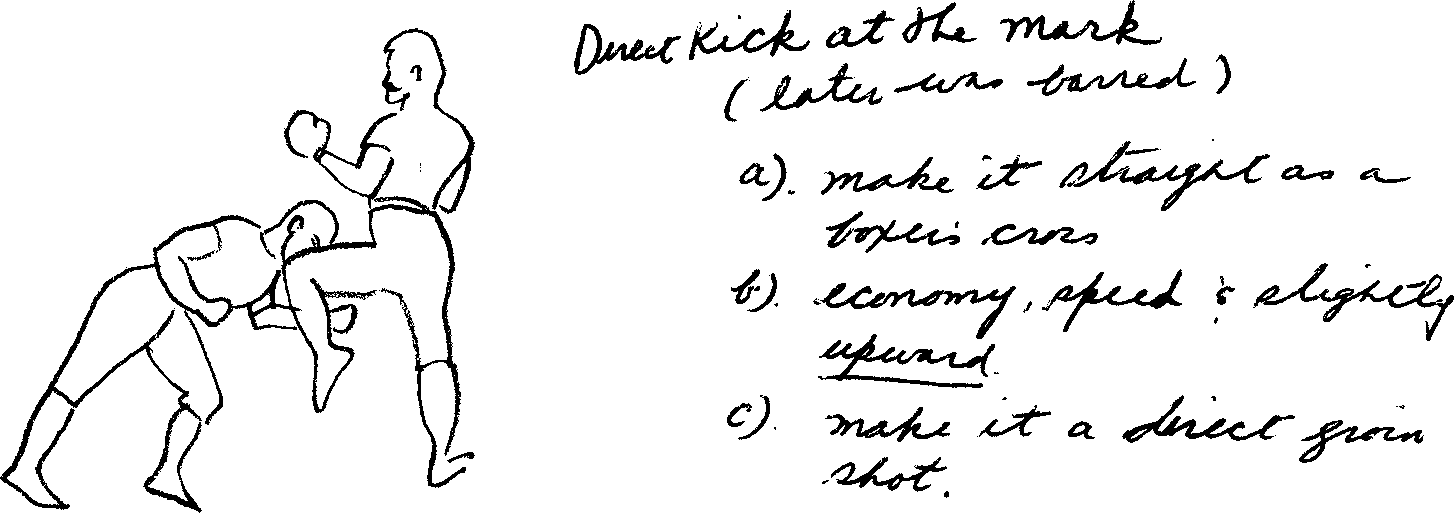 Direct Kick at the mark
(later was barred)
a). make it straight as a
boxer's cross
b). economy, speed & slightly
upward.
c). make it a direct groin
shot.